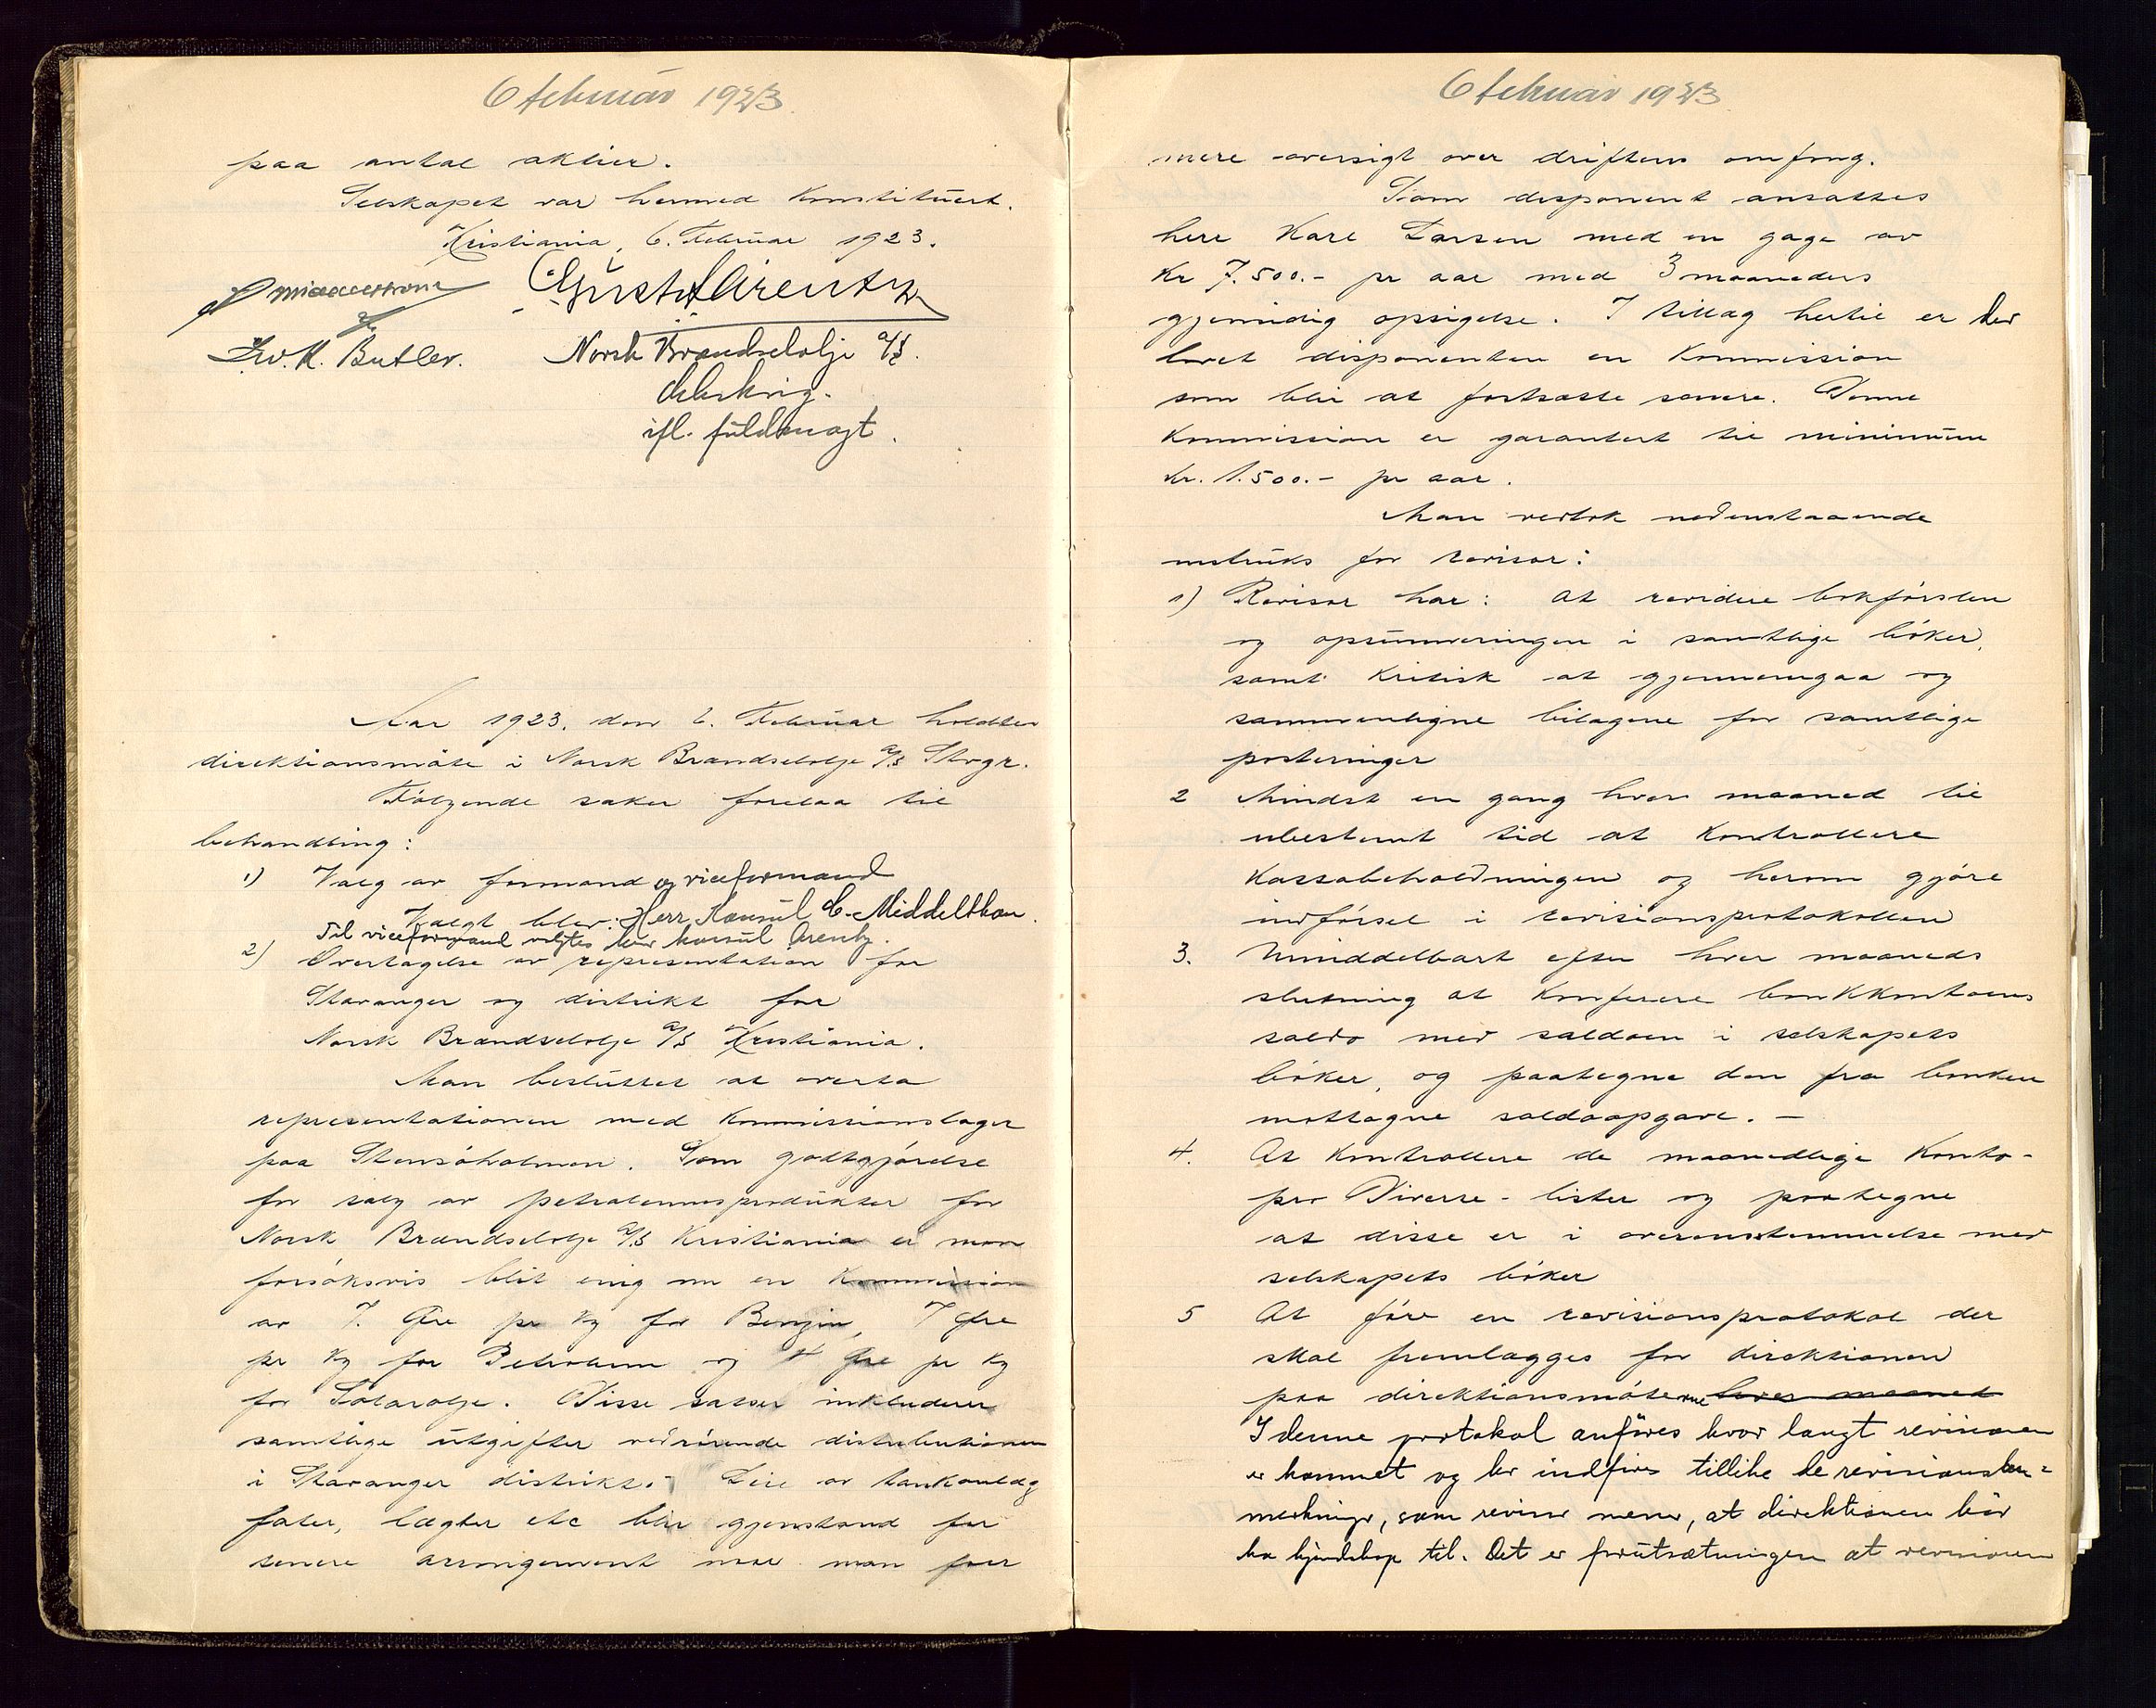 6 februar 1923.
paa antal aktier.
Selskapet var hermed konstituert.
Kristiania, 6. Februar 1923.
C Middelthon Gust. Arentz
Fr. M. Butler. Norsk Brændselolje A/S.
ifl. fuldmagt.
Aar 1923. den 6. Februar holdtes
direktionsmøte i Norsk Brændselolje A/S Stvgr.
Følgende saker forelaa til
behandling:
1) Valg av formand og viceformand
Valgt blev: Herr Konsul C. Middelthon.
Til viceformand valgtes herr konsul Arentz.
2) Overtagelse av representation for
Stavanger og distrikt for
Norsk Brændselolje A/S Kristiania.
Man besluttet at overta
representationen med kommissionslager
paa Stensøholmen. Som godtgjørelse
for salg av petroleumsprodukter for
Norsk Brændselolje A/S Kristiania er man
forsøksvis blit enig om en kommission
av 7. Øre pr kg for Benzin, 7 Øre
pr kg for Petroleum og 4 Øre pr kg
for Solarolje. Disse satser inkluderer
samtlige utgifter vedrørende distributionen
i Stavanger distrikt. - Leie av tankanlæg
fater, lægter etc blir gjenstand for
senere arrangement naar man faar
6 februar 1923
mere oversigt over driftens omfang.
Som disponent ansattes
herr Karl Larsen med en gage av
Kr 7.500.- pr aar med 3 maaneders
gjensidig opsigelse. I tillæg hertil er der
lovet disponenten en kommission
som blir at fortsætte senere. Denne
kommission er garantert til minimum
kr. 1.500.- pr aar.
Man vedtok nedenstaaende
instruks for revisor:
1) Revisor har: At revidere bokførslen
og opsummeringen i samtlige bøker,
samt kritisk at gjennemgaa og
sammenligne bilagene for samtlige
posteringer
2 Mindst en gang hver maaned til
ubestemt tid at kontrollere
kassabeholdningen og herom gjøre
indførsel i revisionsprotokollen
3. Umiddelbart efter hver maaneds
slutning at konferere bankkontoens
saldo med saldoen i selskapets
bøker, og paategne den fra banken
mottagne saldoopgave. -
4. At kontrollere de maanedlige Konto-
pro Diverse - lister og paategne
at disse er i overensstemmelse med
selskapets bøker
5 At føre en revisionsprotokol der
skal fremlægges for direktionen
paa direktionsmøterne hver maaned
I denne protokol anføres hvor langt revisionen
er kommet og der indføres tillike de revisionsbe=
merkninger, som revisor mener, at direktionen bør
ha kjendskap til. Det er forutsætningen at revisionen